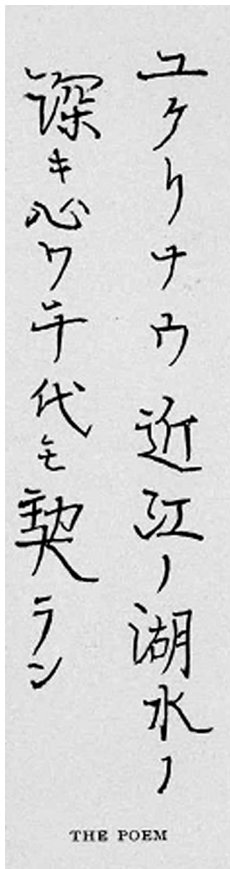 ユクリナウ近江ノ湖水ノ
深キ心ワ千代モ契ラン
THE POEM